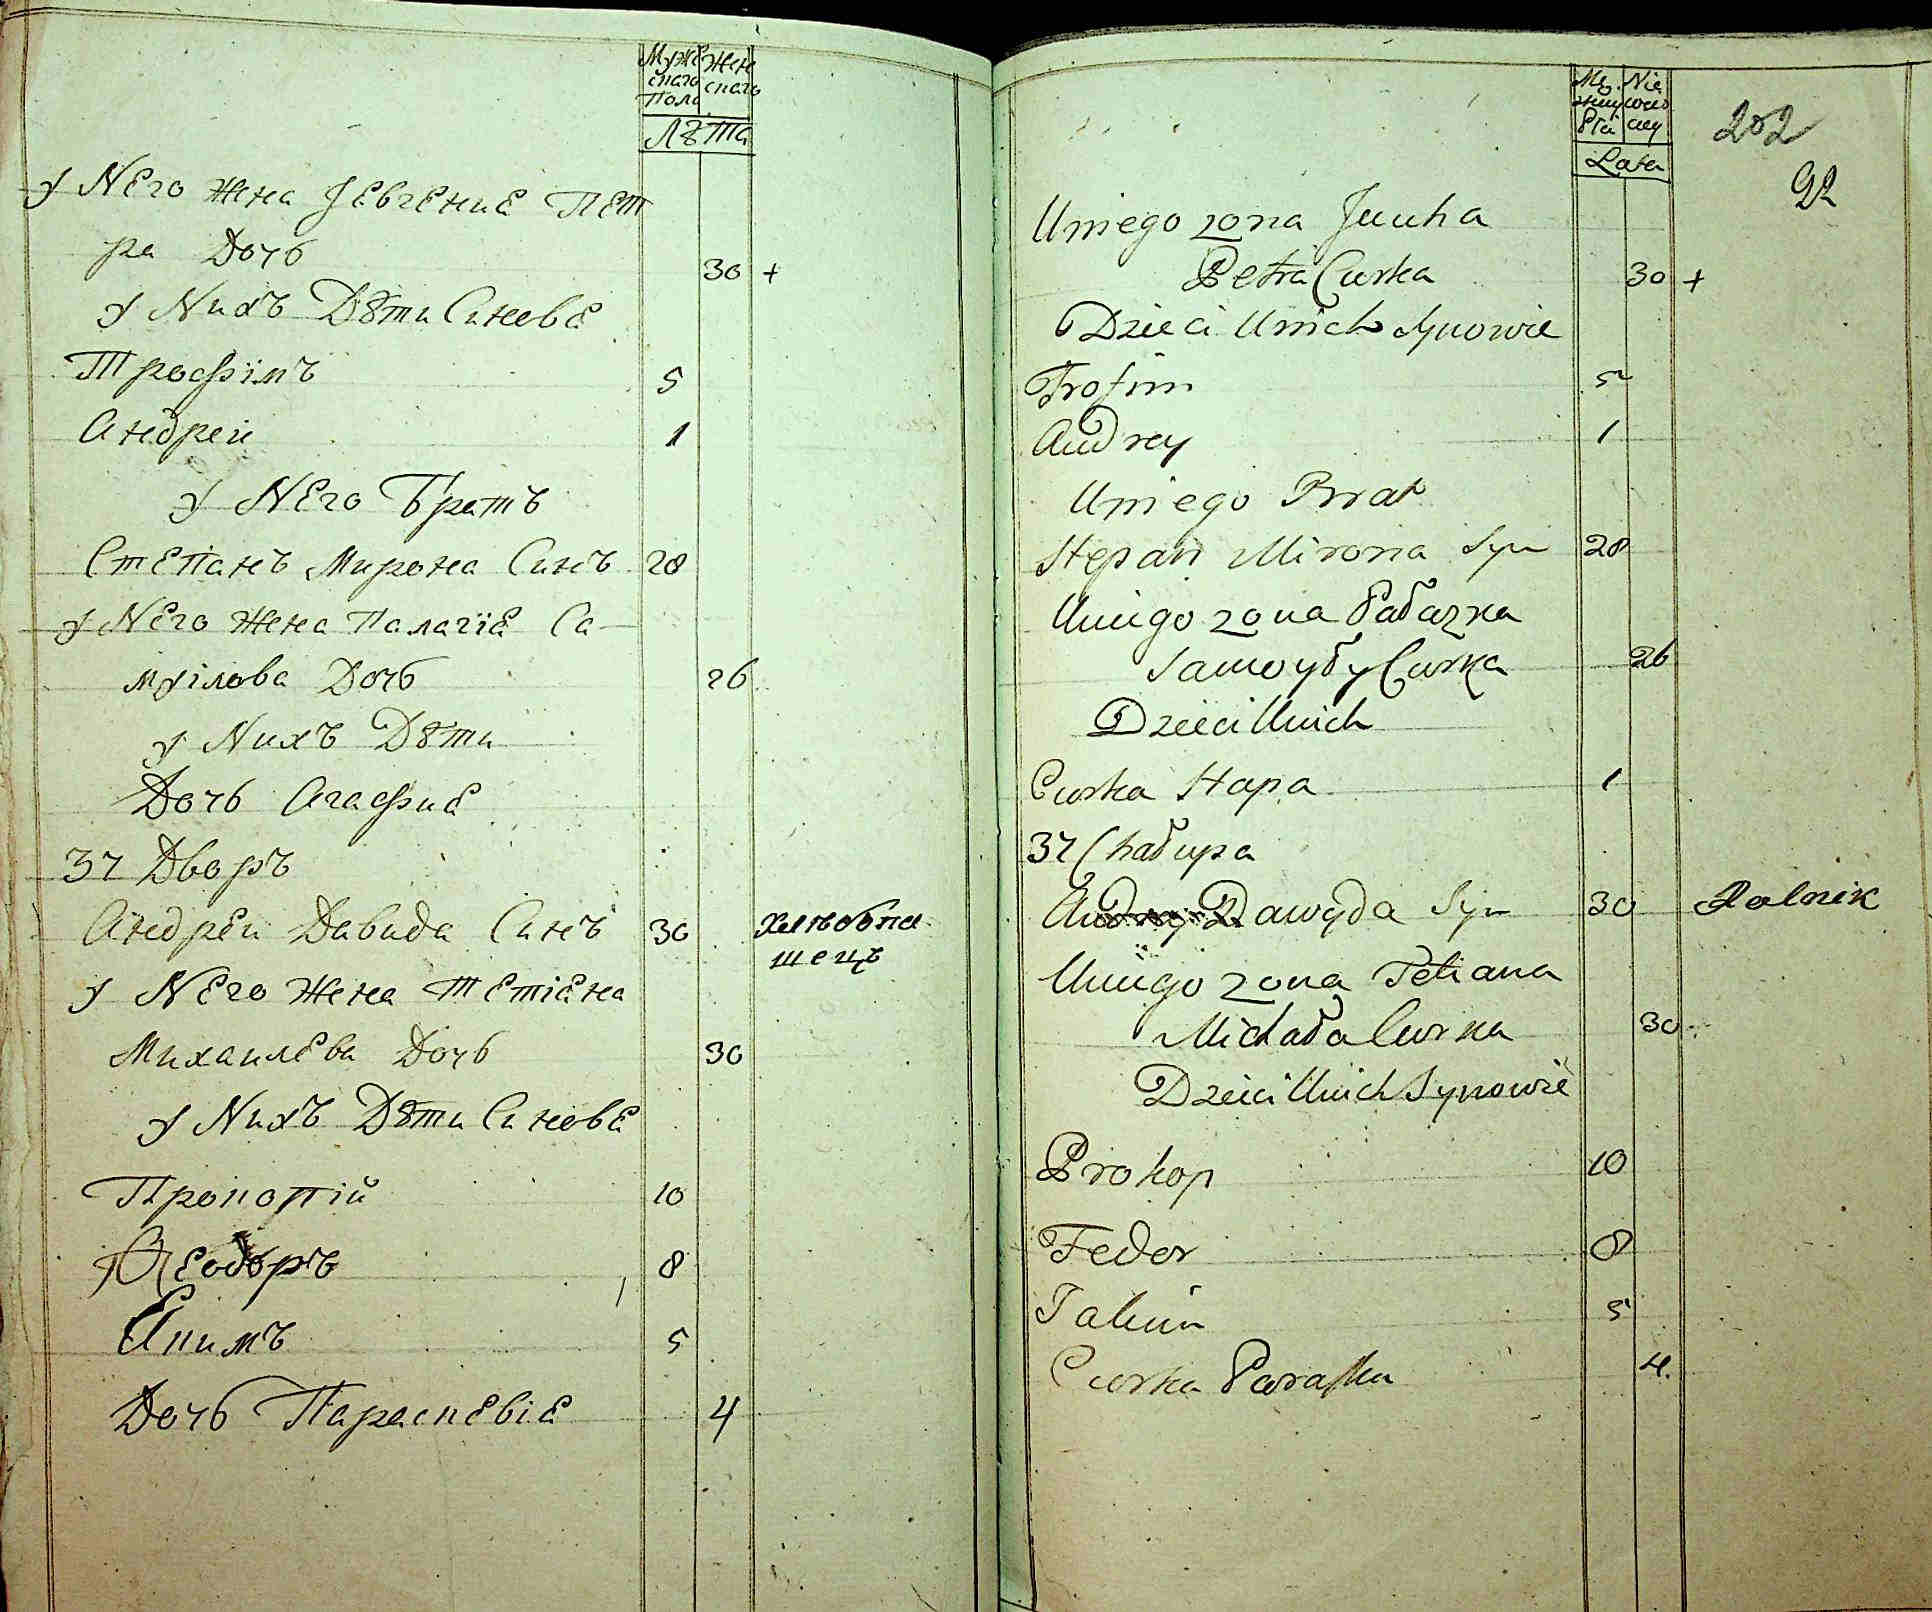 Мужескаго Пола
Женскаго
Лѣта
У Него жена Јевгение Пет
ра Дочь 30 +
У Нихъ Дѣти Синове
Трофімъ 5
Андрей 1
У Него Братъ
Степанъ Мирона Синъ 28
У Него Жена Палагіе Са
муілова Дочь 26
У Нихъ Дѣти
Дочь Агафие
37 Дворъ
Андреи Давида Синъ 30 хлѣбопа
шецъ
У Него Жена Тетіена
Михаилева Дочь 30
У Нихъ Дѣти Синове
Прокопій 10
Ѳеодоръ 8
Екимъ 5
Дочь Параскевіе 4
Lata
202
92
Uniego zona Jucuha
Petra Curka 30 +
Dzieci Unich Synowie
Trofim 5
Andrey 1
Uniego Brat
Stepan Mirona Syn 28
Uniego zona Pałazka
Samoyły Curka 26
Dzieci Unich
Curka Hapa 1
37 Chałupa
Andrey Dawyda Syn 30 Rolnik
Uniego zona Tetiana
Michała Curka 30
Dzieci Unich Synowie
Prokop 10
Fedor 8
Jakim 5
Curka Paraska 4